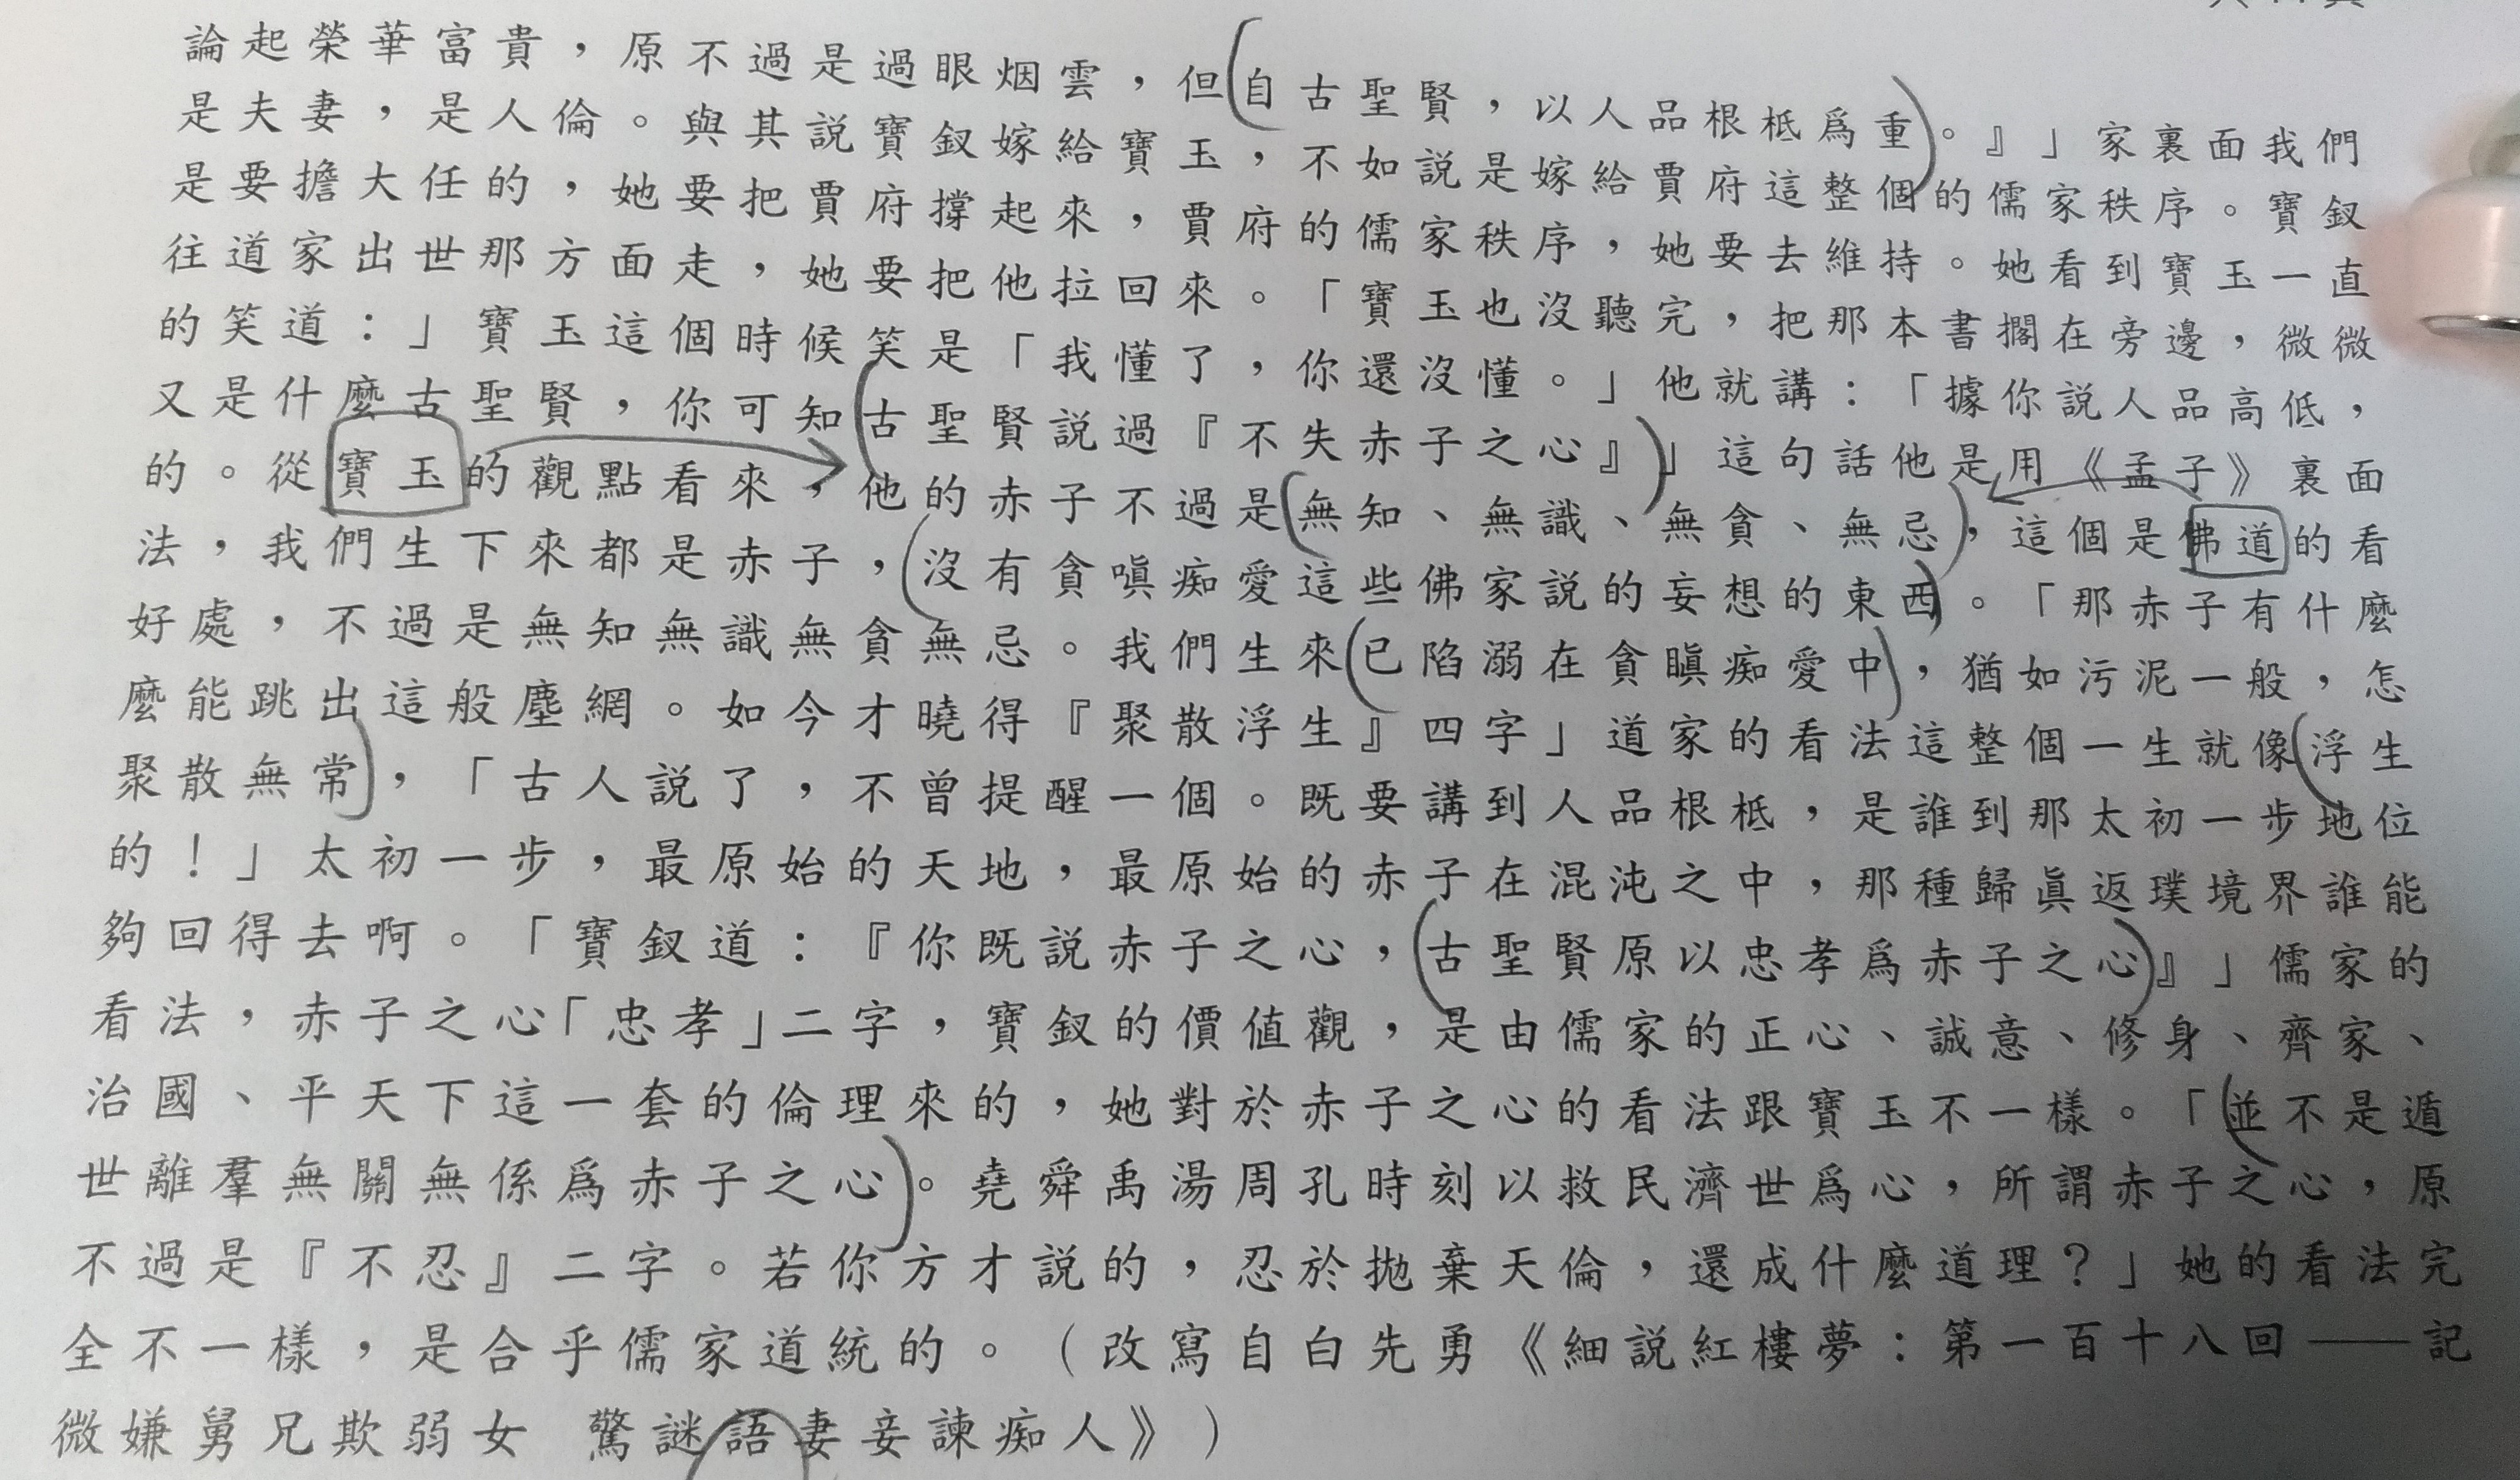 論起榮華富貴，原不過是過眼烟雲，但自古聖賢，以人品根柢爲重。』」家裏面我們
是夫妻，是人倫。與其說寶釵嫁給寶玉，不如說是嫁給賈府這整個的儒家秩序。寶釵
是要擔大任的，她要把賈府撐起來，賈府的儒家秩序，她要去維持。她看到寶玉一直
往道家出世那方面走，她要把他拉回來。「寶玉也沒聽完，把那本書擱在旁邊，微微
的笑道：」寶玉這個時候笑是「我懂了，你還沒懂。」他就講：「據你說人品高低，
又是什麼古聖賢，你可知古聖賢說過『不失赤子之心』」這句話他是用《孟子》裏面
的。從寶玉的觀點看來，他的赤子不過是無知、無識、無貪、無忌，這個是佛道的看
法，我們生下來都是赤子，沒有貪嗔痴愛這些佛家說的妄想的東西。「那赤子有什麼
好處，不過是無知無識無貪無忌。我們生來已陷溺在貪瞋痴愛中，猶如污泥一般，怎
麼能跳出這般塵網。如今才曉得『聚散浮生』四字」道家的看法這整個一生就像浮生
聚散無常，「古人說了，不曾提醒一個。既要講到人品根柢，是誰到那太初一步地位
的！」太初一步，最原始的天地，最原始的赤子在混沌之中，那種歸眞返璞境界誰能
夠回得去啊。「寶釵道：『你既說赤子之心，古聖賢原以忠孝爲赤子之心』」儒家的
看法，赤子之心「忠孝」二字，寶釵的價值觀，是由儒家的正心、誠意、修身、齊家、
治國、平天下這一套的倫理來的，她對於赤子之心的看法跟寶玉不一樣。「並不是遁
世離羣無關無係爲赤子之心。堯舜禹湯周孔時刻以救民濟世爲心，所謂赤子之心，原
不過是『不忍』二字。若你方才說的，忍於拋棄天倫，還成什麼道理？」她的看法完
全不一樣，是合乎儒家道統的。（改寫自白先勇《細說紅樓夢：第一百十八回——記
微嫌舅兄欺弱女 驚謎語妻妾諫痴人》）